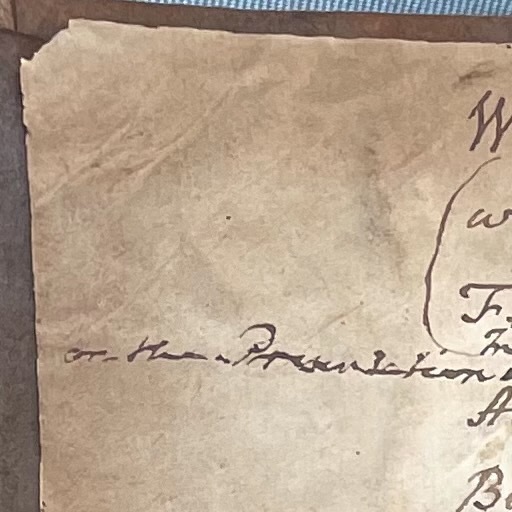 W
w
F
In
or the Presentation
A
B